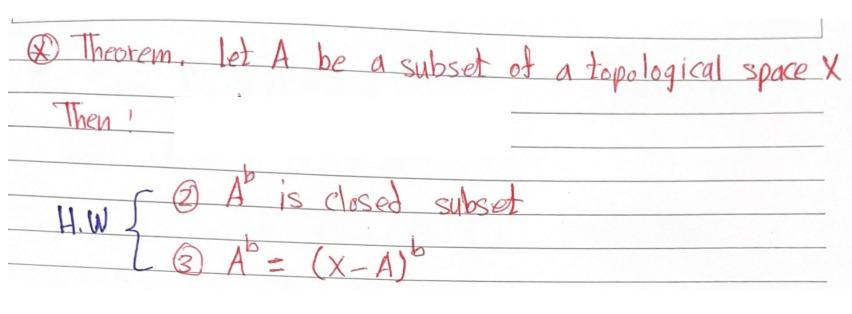 ⓧ Theorem. Let A be a subset of a topological space X
Then :
H.W { ② Aᵇ is closed subset
③ Aᵇ = (X-A)ᵇ